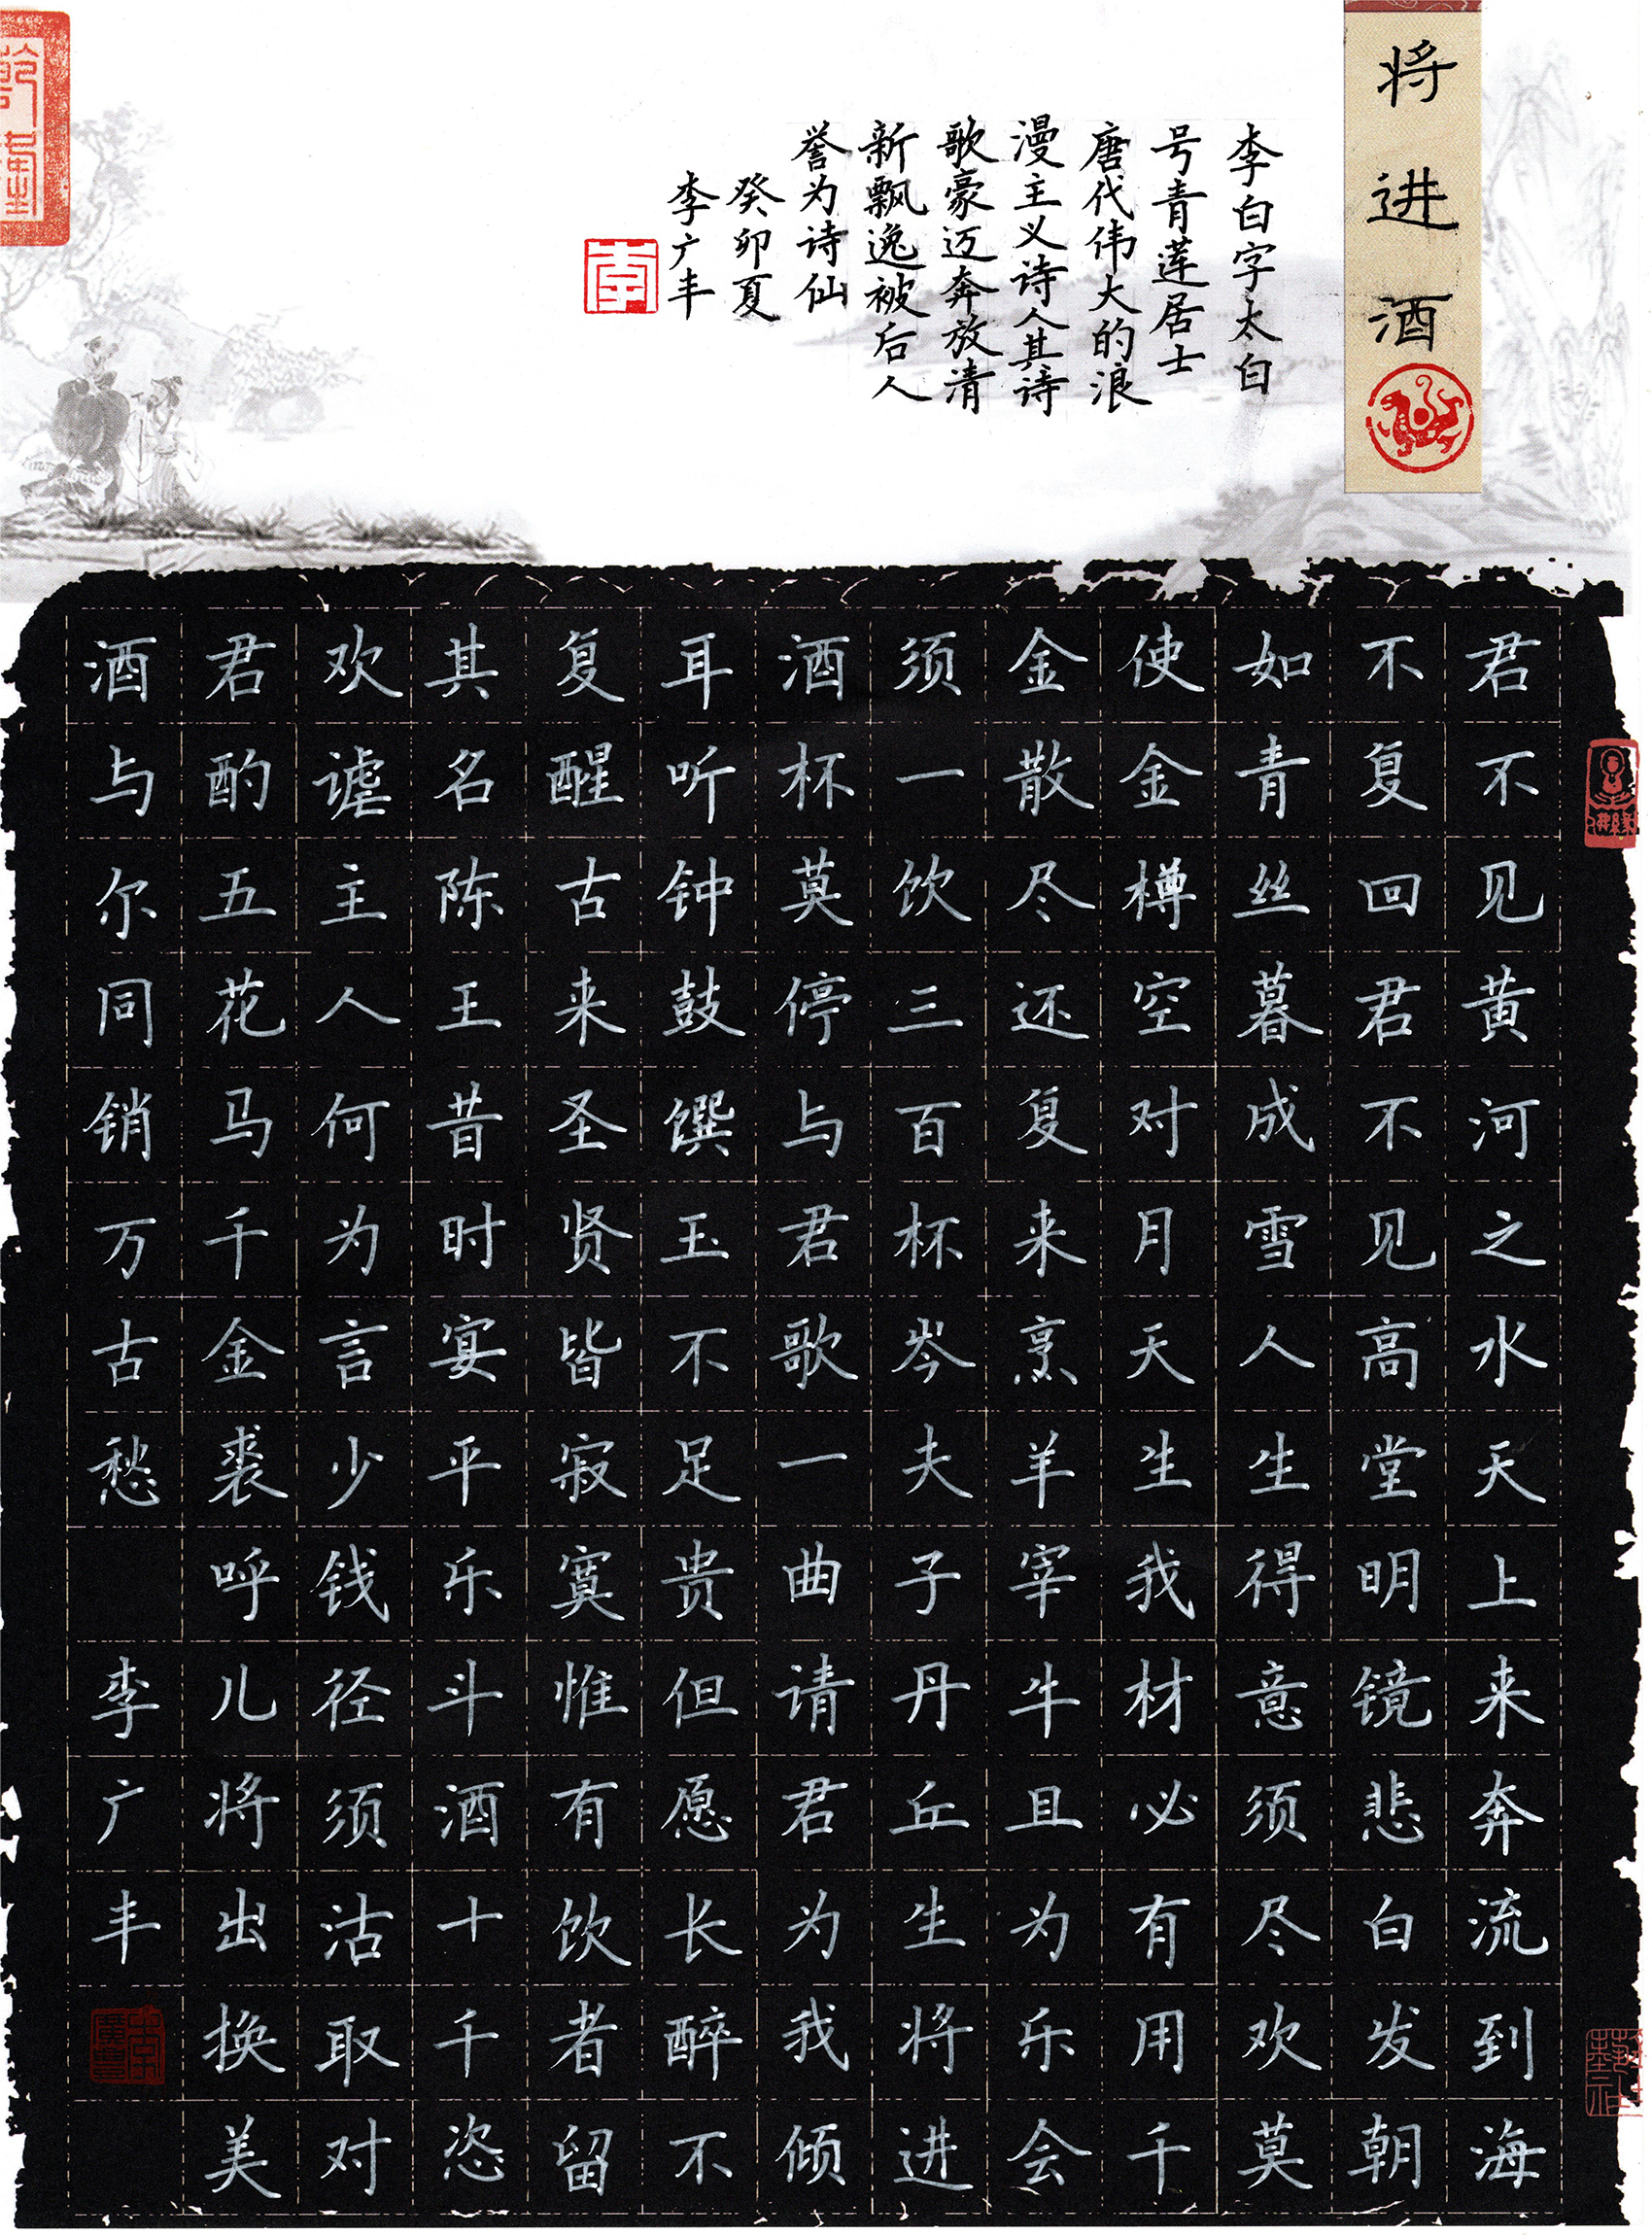 将进酒
李白字太白
号青莲居士
唐代伟大的浪
漫主义诗人其诗
歌豪迈奔放清
新飘逸被后人
誉为诗仙
癸卯夏
李广丰
李
君不见黄河之水天上来奔流到海
不复回君不见高堂明镜悲白发朝
如青丝暮成雪人生得意须尽欢莫
使金樽空对月天生我材必有用千
金散尽还复来烹羊宰牛且为乐会
须一饮三百杯岑夫子丹丘生将进
酒杯莫停与君歌一曲请君为我倾
耳听钟鼓馔玉不足贵但愿长醉不
复醒古来圣贤皆寂寞惟有饮者留
其名陈王昔时宴平乐斗酒十千恣
欢谑主人何为言少钱径须沽取对
君酌五花马千金裘呼儿将出换美
酒与尔同销万古愁 李广丰